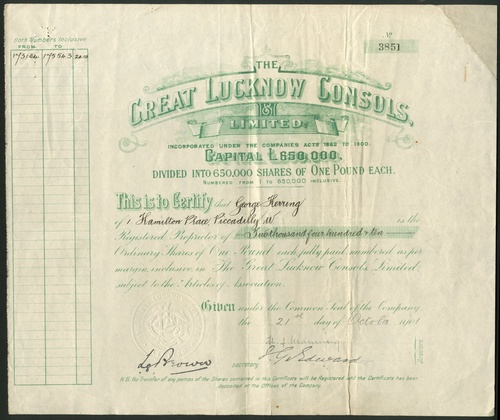 Both Numbers Inclusive
FROM TO
No
3851
THE
GREAT LUCKNOW CONSOLS,
LIMITED.
INCORPORATED UNDER THE COMPANIES ACTS 1862 TO 1900.
CAPITAL £650,000.
DIVIDED INTO 650,000 SHARES OF ONE POUND EACH.
NUMBERED FROM 1 TO 650,000 INCLUSIVE.
This is to Certify that George Herring
of 1 Hamilton Place, Piccadilly W is the
Registered Proprietor of Two thousand four hundred & ten
Ordinary Shares of One Pound each, fully paid, numbered as per
margin, inclusive, in The Great Lucknow Consols, Limited,
subject to the Articles of Association.
Given under the Common Seal of the Company
the 21st day of October 1901
SECRETARY
N.B. No Transfer of any portion of the Shares contained in this Certificate will be Registered until the Certificate has been
deposited at the Offices of the Company.